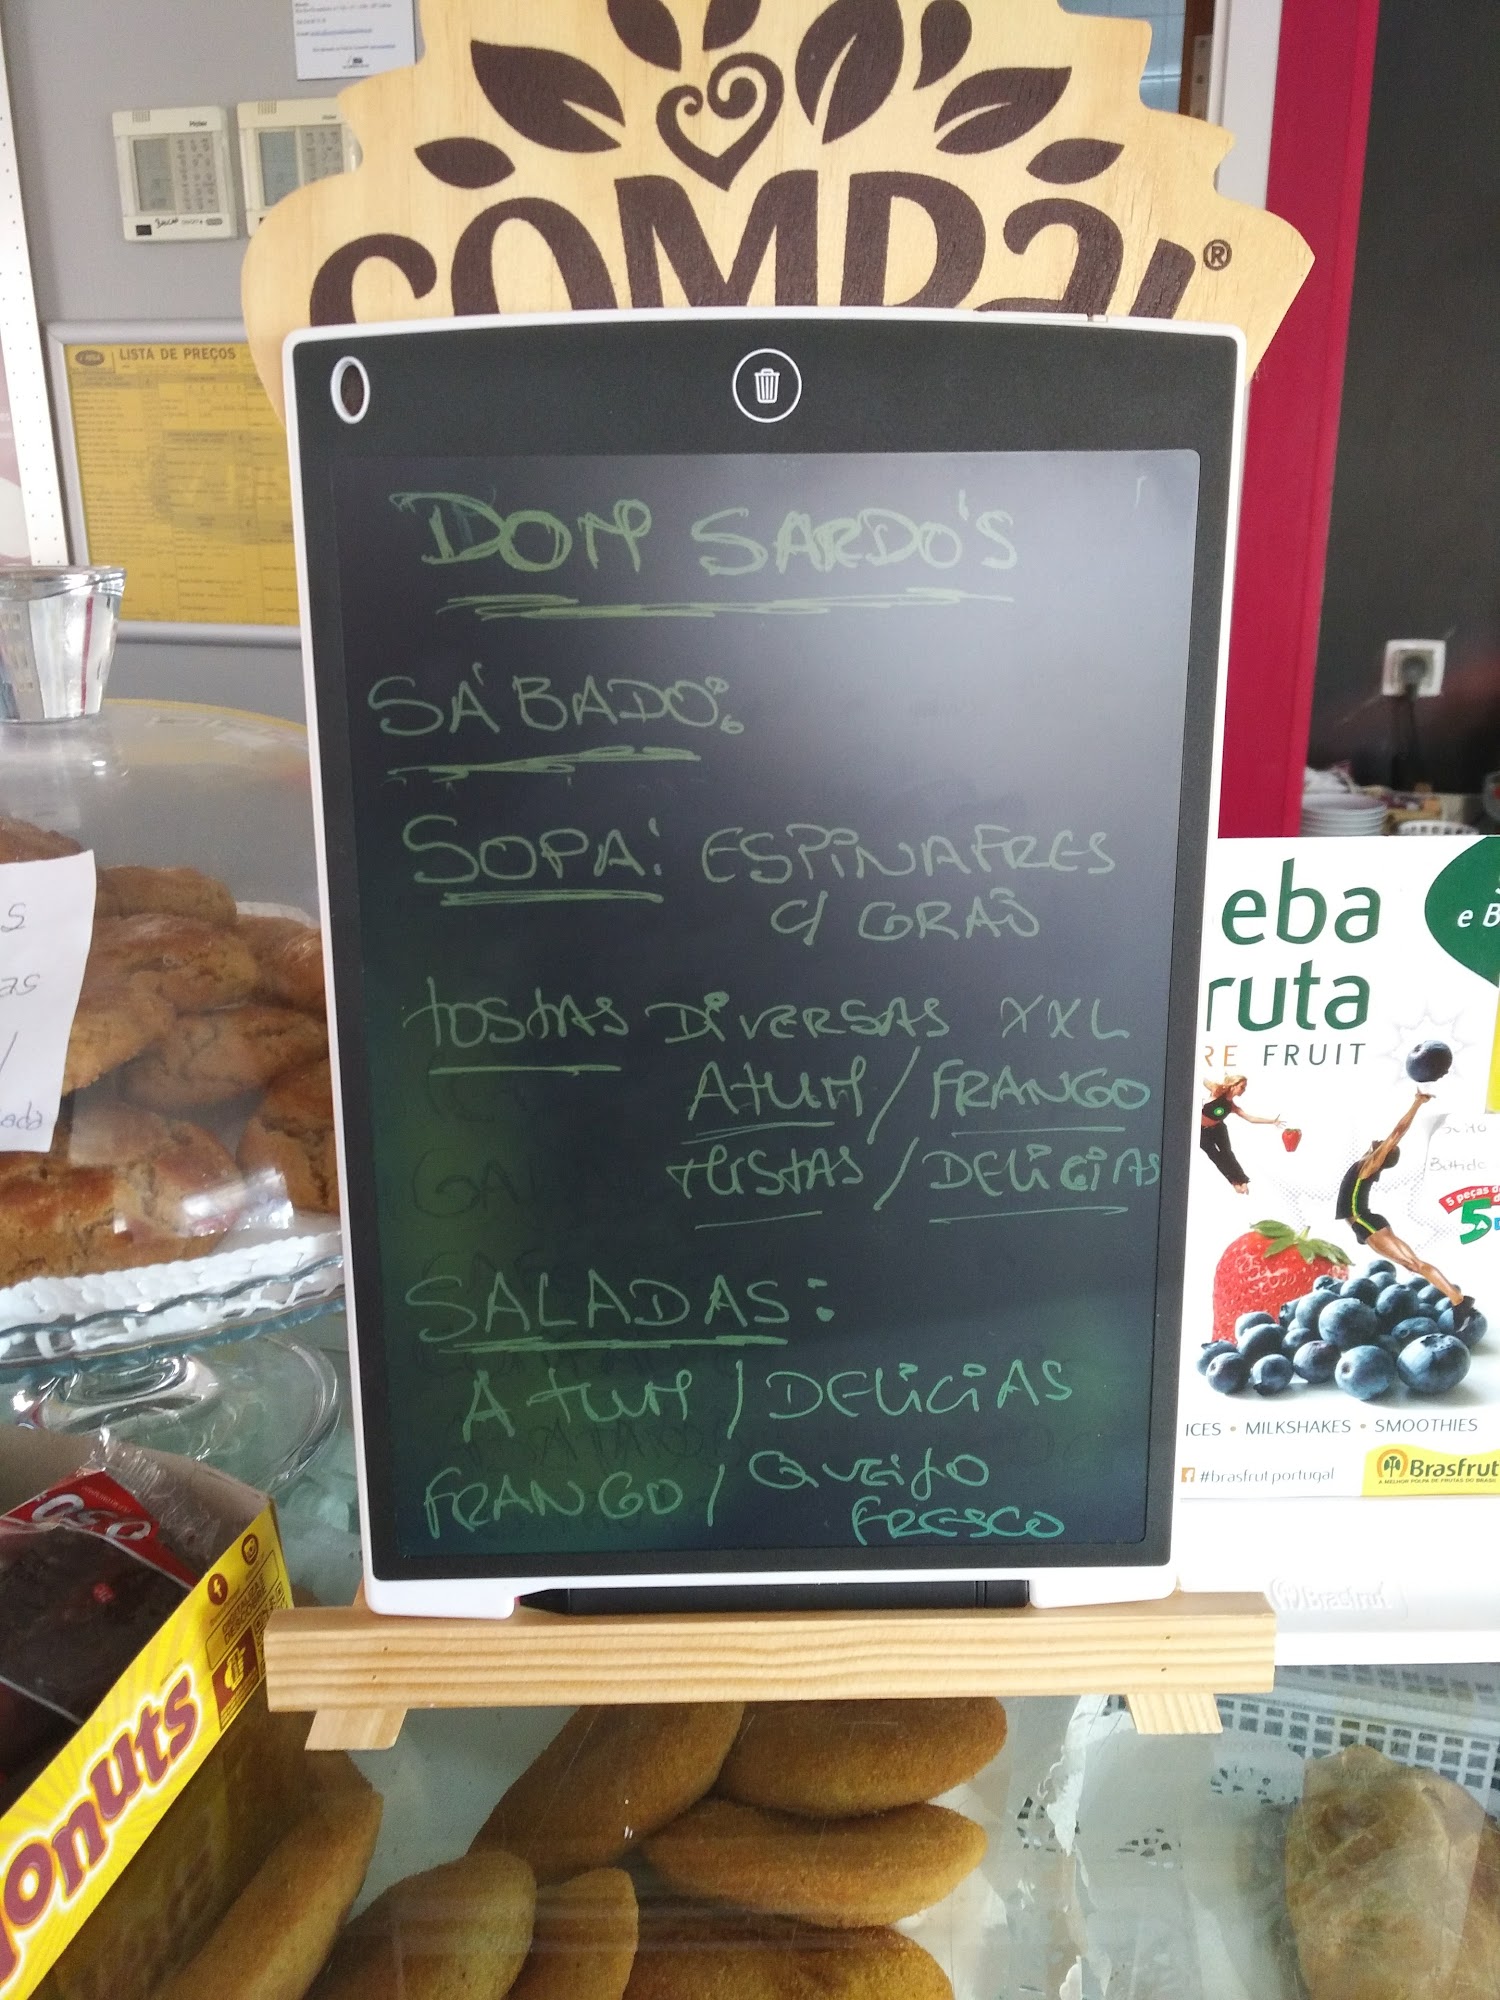 COMPAL®
LISTA DE PREÇOS
DOM SARDO'S
SÁBADO:
SOPA: ESPINAFRES
C/ GRÃO
TOSTAS DIVERSAS XXL
ATUM / FRANGO
MISTAS / DELICIAS
SALADAS:
ATUM / DELICIAS
FRANGO / QUEIJO
FRESCO
eba
ruta
RE FRUIT
e B
5
ICES • MILKSHAKES • SMOOTHIES
#brasfrutportugal
Brasfrut
A MELHOR POLPA DE FRUTAS DO BRASIL
Brasfrut
s
as
/
ada
onuts